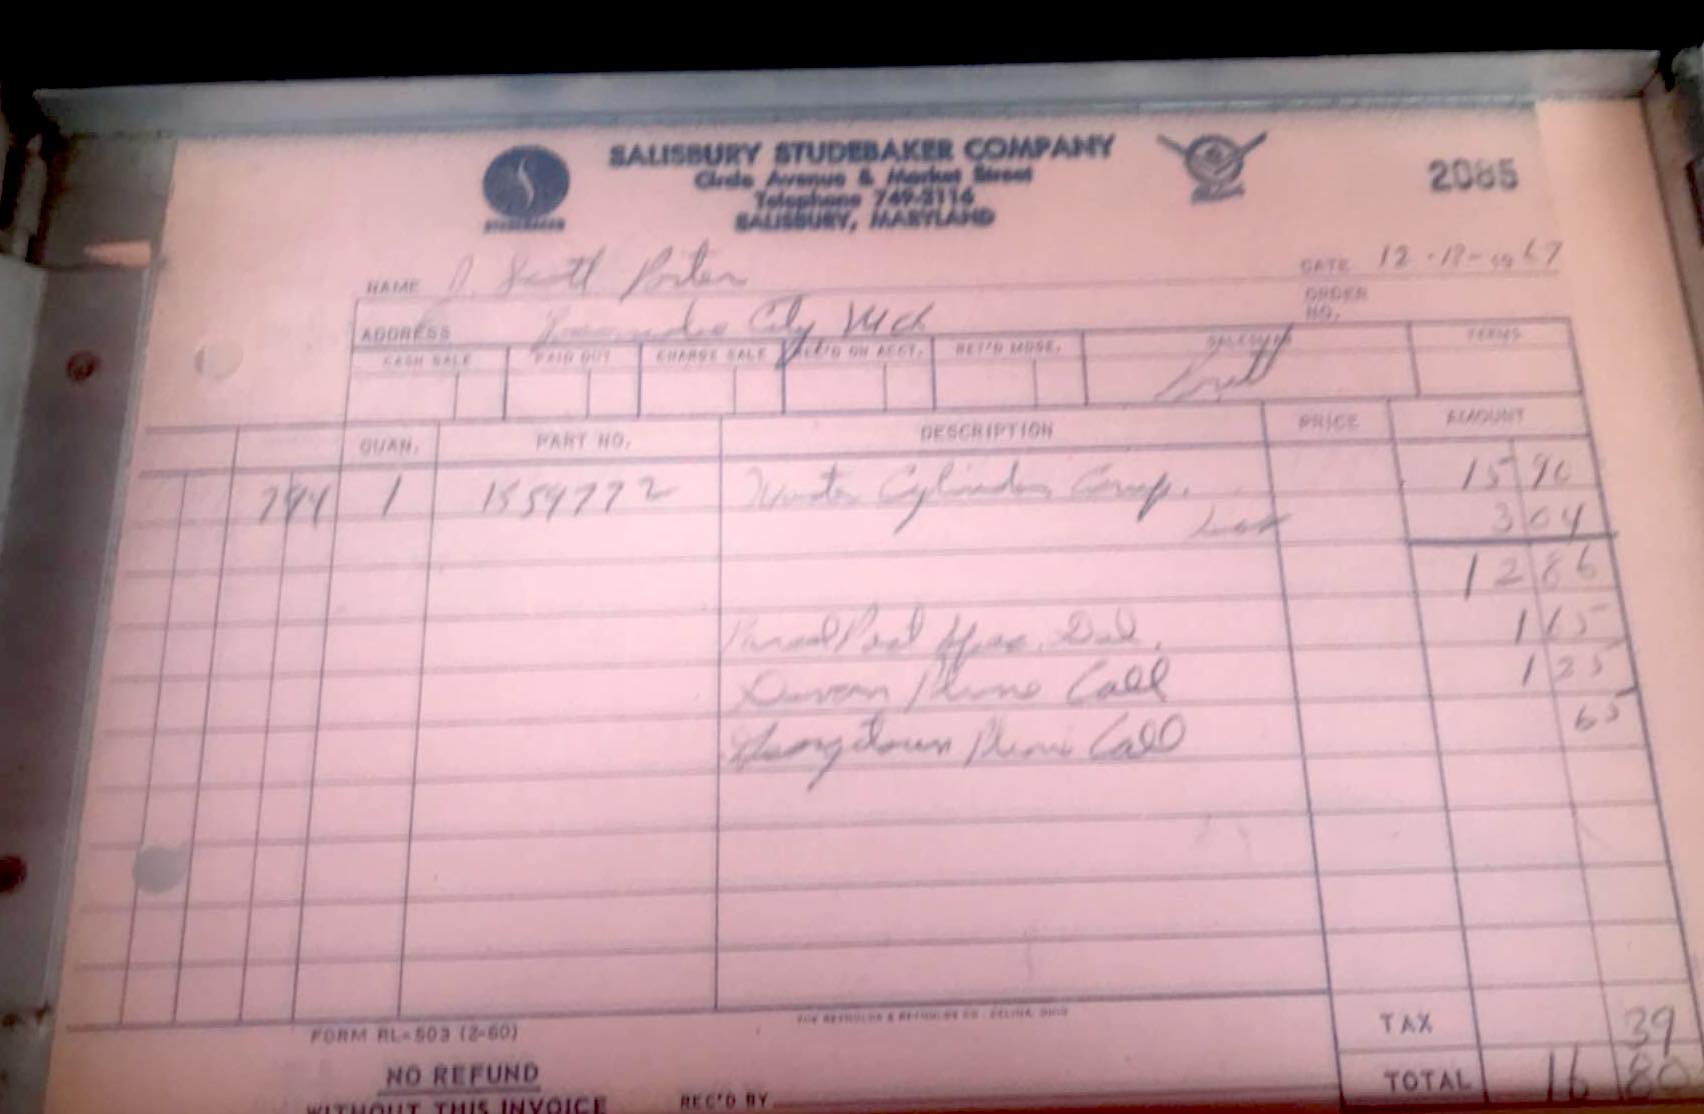 SALISBURY STUDEBAKER COMPANY
Circle Avenue & Market Street
Telephone 749-3116
SALISBURY, MARYLAND
STUDEBAKER
2085
NAME Scott Porter
DATE 12-12-1967
ORDER NO.
ADDRESS City Md
CASH SALE PAID OUT CHARGE SALE REC'D ON ACCT. RET'D MDSE. SALESMAN TERMS
QUAN. PART NO. DESCRIPTION PRICE AMOUNT
794 1 1559772 Cylinder Comp. 15 90
Less 3 04
12 86
Parcel Post Spec. Del. 1 65
Phone Call 1 25
Georgetown Phone Call 65
TAX 39
TOTAL 16 80
FORM RL-503 (2-60)
THE REYNOLDS & REYNOLDS CO., CELINA, OHIO
NO REFUND
WITHOUT THIS INVOICE
REC'D BY